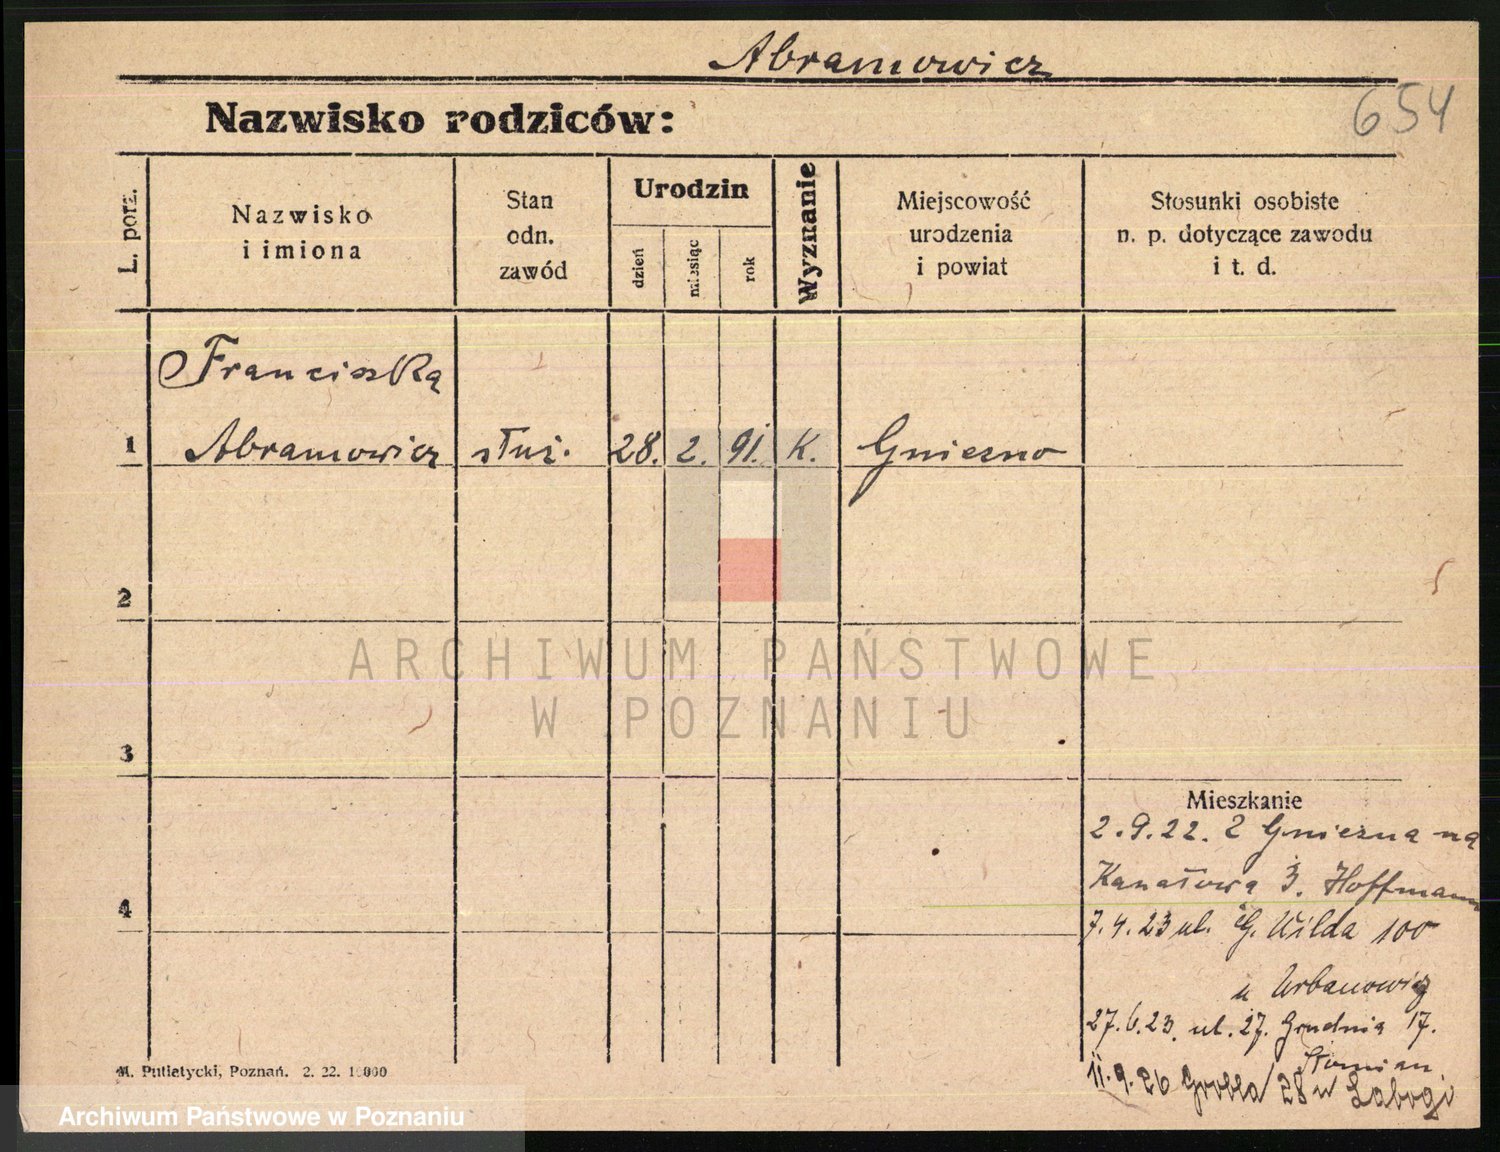 Abramowicz
Nazwisko rodziców:
654
L. porz.
Nazwisko
i imiona
Stan
odn.
zawód
Urodzin
dzień
miesiąc
rok
Wyznanie
Miejscowość
urodzenia
i powiat
Stosunki osobiste
n. p. dotyczące zawodu
i t. d.
Franciszka
1 Abramowicz służ. 28. 2. 91. K. Gniezno
2
ARCHIWUM PAŃSTWOWE
W POZNANIU
3
Mieszkanie
2.9.22. z Gniezna na
Kanałową 3. Hoffmann
4
7.4.23 ul. G. Wilda 100
u Urbanowicz
27.6.23. ul. 27. Grudnia 17.
Słomian
11.9.26 Grobla 28 u
M. Putiatycki, Poznań. 2. 22. 10000
Archiwum Państwowe w Poznaniu